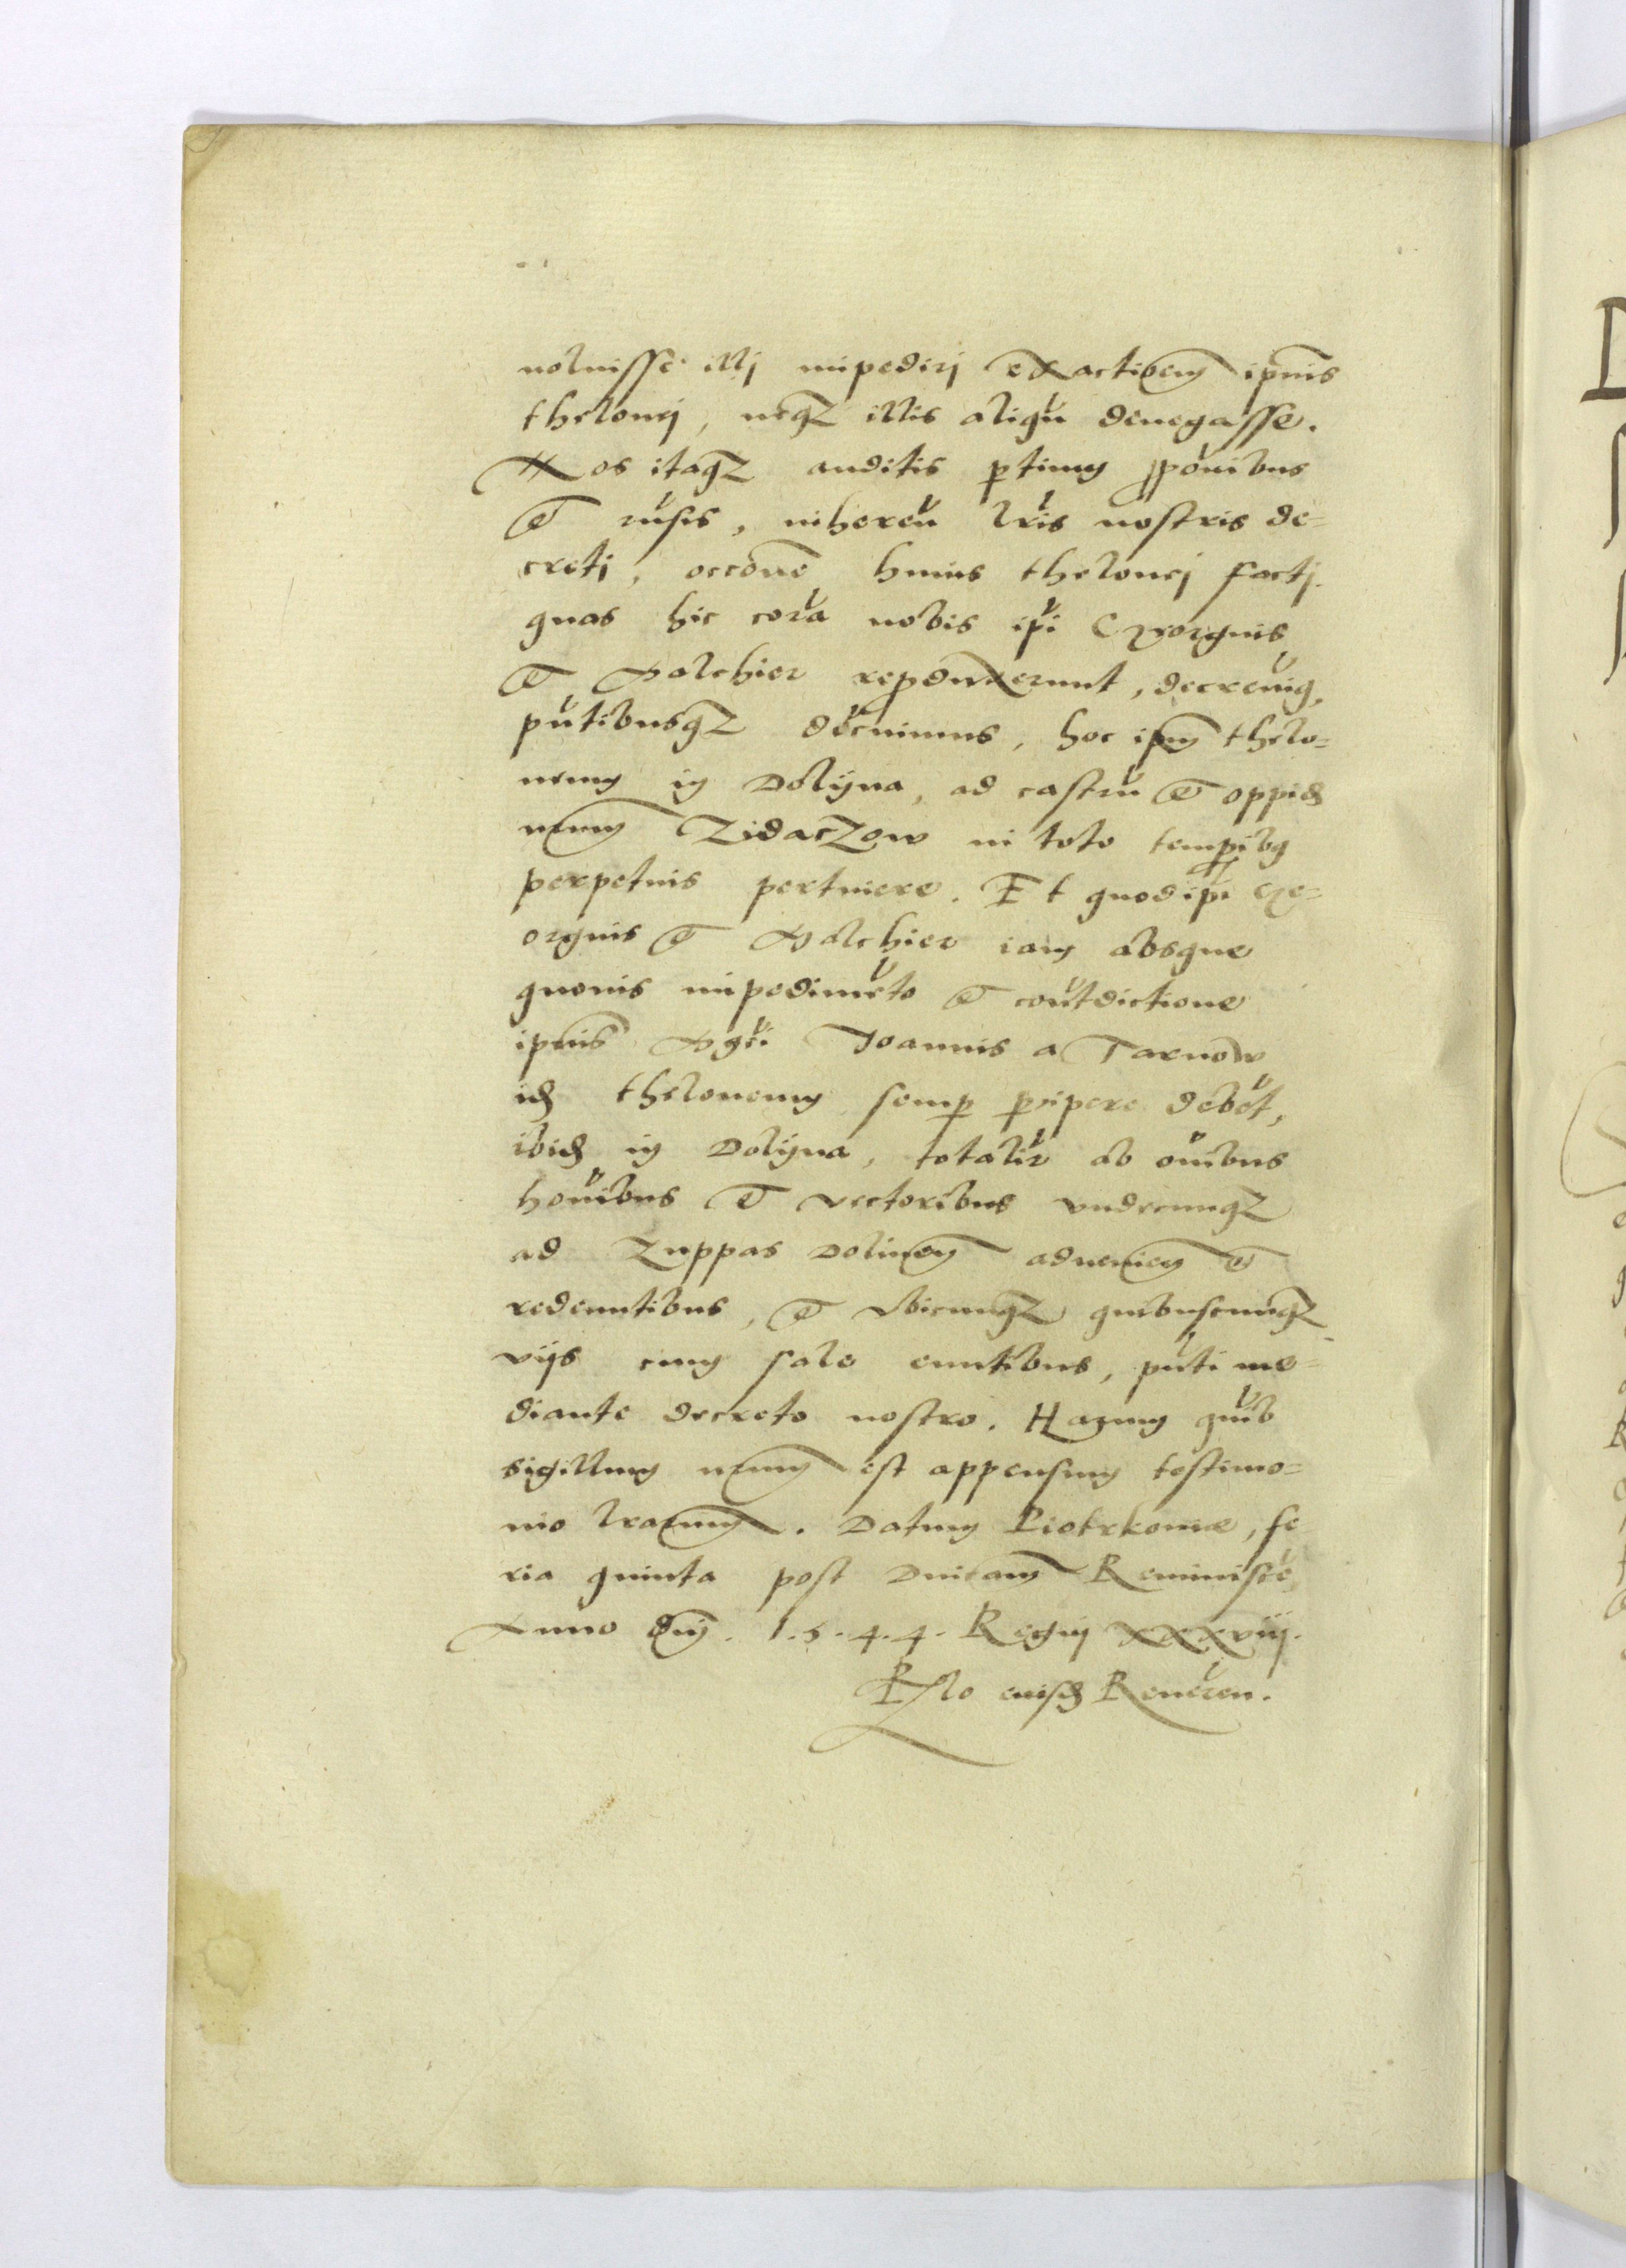 noluisse illj impedirj exactionem ipius
thelonej, neqz illis aliqn denegasse.
Nos itaqz auditis ptium pponibus
et rnsis, inheren lris nostris de=
cretj, occone huius thelonej factj.
quas hic cora nobis ipi Georgius
et Malchier reproduxerunt, decreuim9,
pntibusqz decnimus, hoc ipm thelo=
neum in Dolÿna, ad castru et oppid
nrum Zidaczow in toto temporib9
perpetuis pertinere. Et quod ipi Ge=
orgius et Malchier iam absque
quouis impedimeto et contdictione
ipius Mgci Joannis a Tarnow
id theloneum semp pcipere debet,
ibid in Dolÿna, totalir ab oibus
hoibus et vectoribus vndecunqz
ad Zuppas Dolinen adnenien et
redeuntibus, et vbicunqz quibuscunqz
vijs cum sale euntibus, pnti me=
diante decreto nostro. Harum quib
sigillum nrum est appensum testimo=
nio lrarum. Datum Piotrkouiæ, fe
ria quinta post Dnicam Reminisce
Anno Dnj. 1.5.4.4. Regnj xxxviij.
Rlo eiusd Reueren.